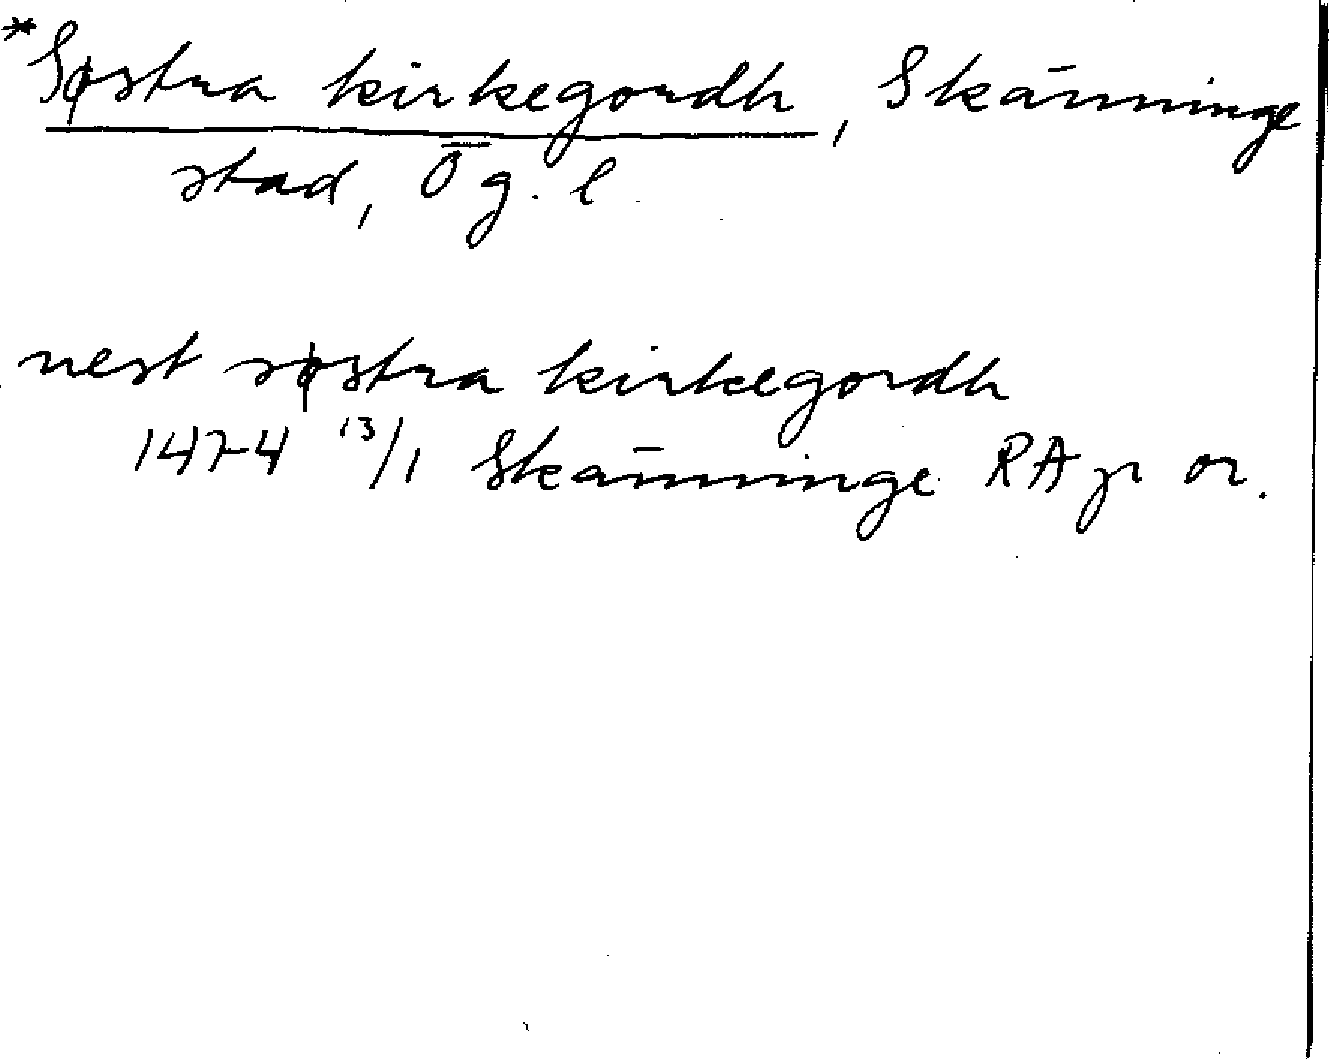 *Søstra kirkegordh, Skänninge
stad, Ög. l.
nest søstra kirkegordh
1474 13/1 Skänninge RAp or.